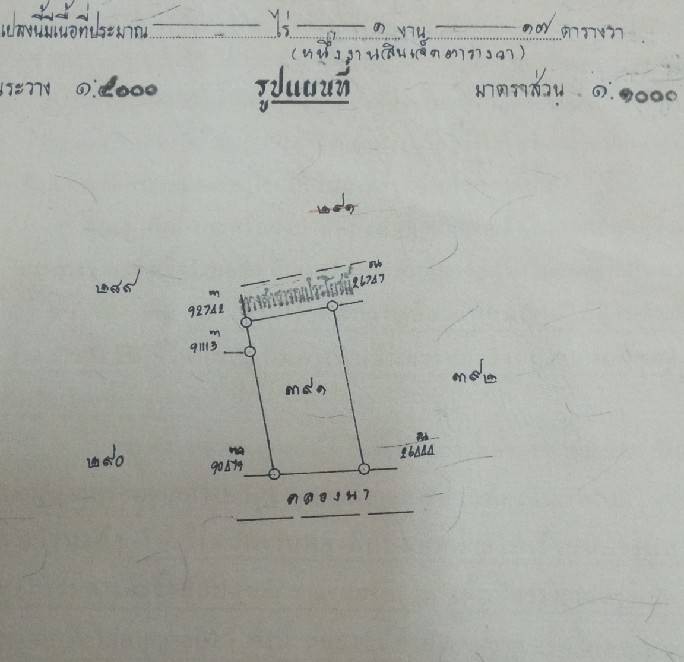 แปลงนี้มีเนื้อที่ประมาณ — ไร่ — ๑ งาน — ๑๗ ตารางวา
(หนึ่งงานสิบเจ็ดตารางวา)
ระวาง ๑:๕๐๐๐ รูปแผนที่ มาตราส่วน ๑:๑๐๐๐
๒๙๑
๒๘๙
ทางสาธารณประโยชน์
92742
26747
91113
๓๙๑
๓๙๒
๒๙๐
90479
26444
คลองนา